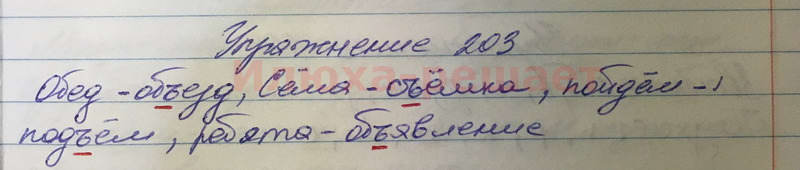 Упражнение 203
Илюха решает
Обед - объезд, Сёма - съёмка, пойдём -
подъём, ребята - объявление